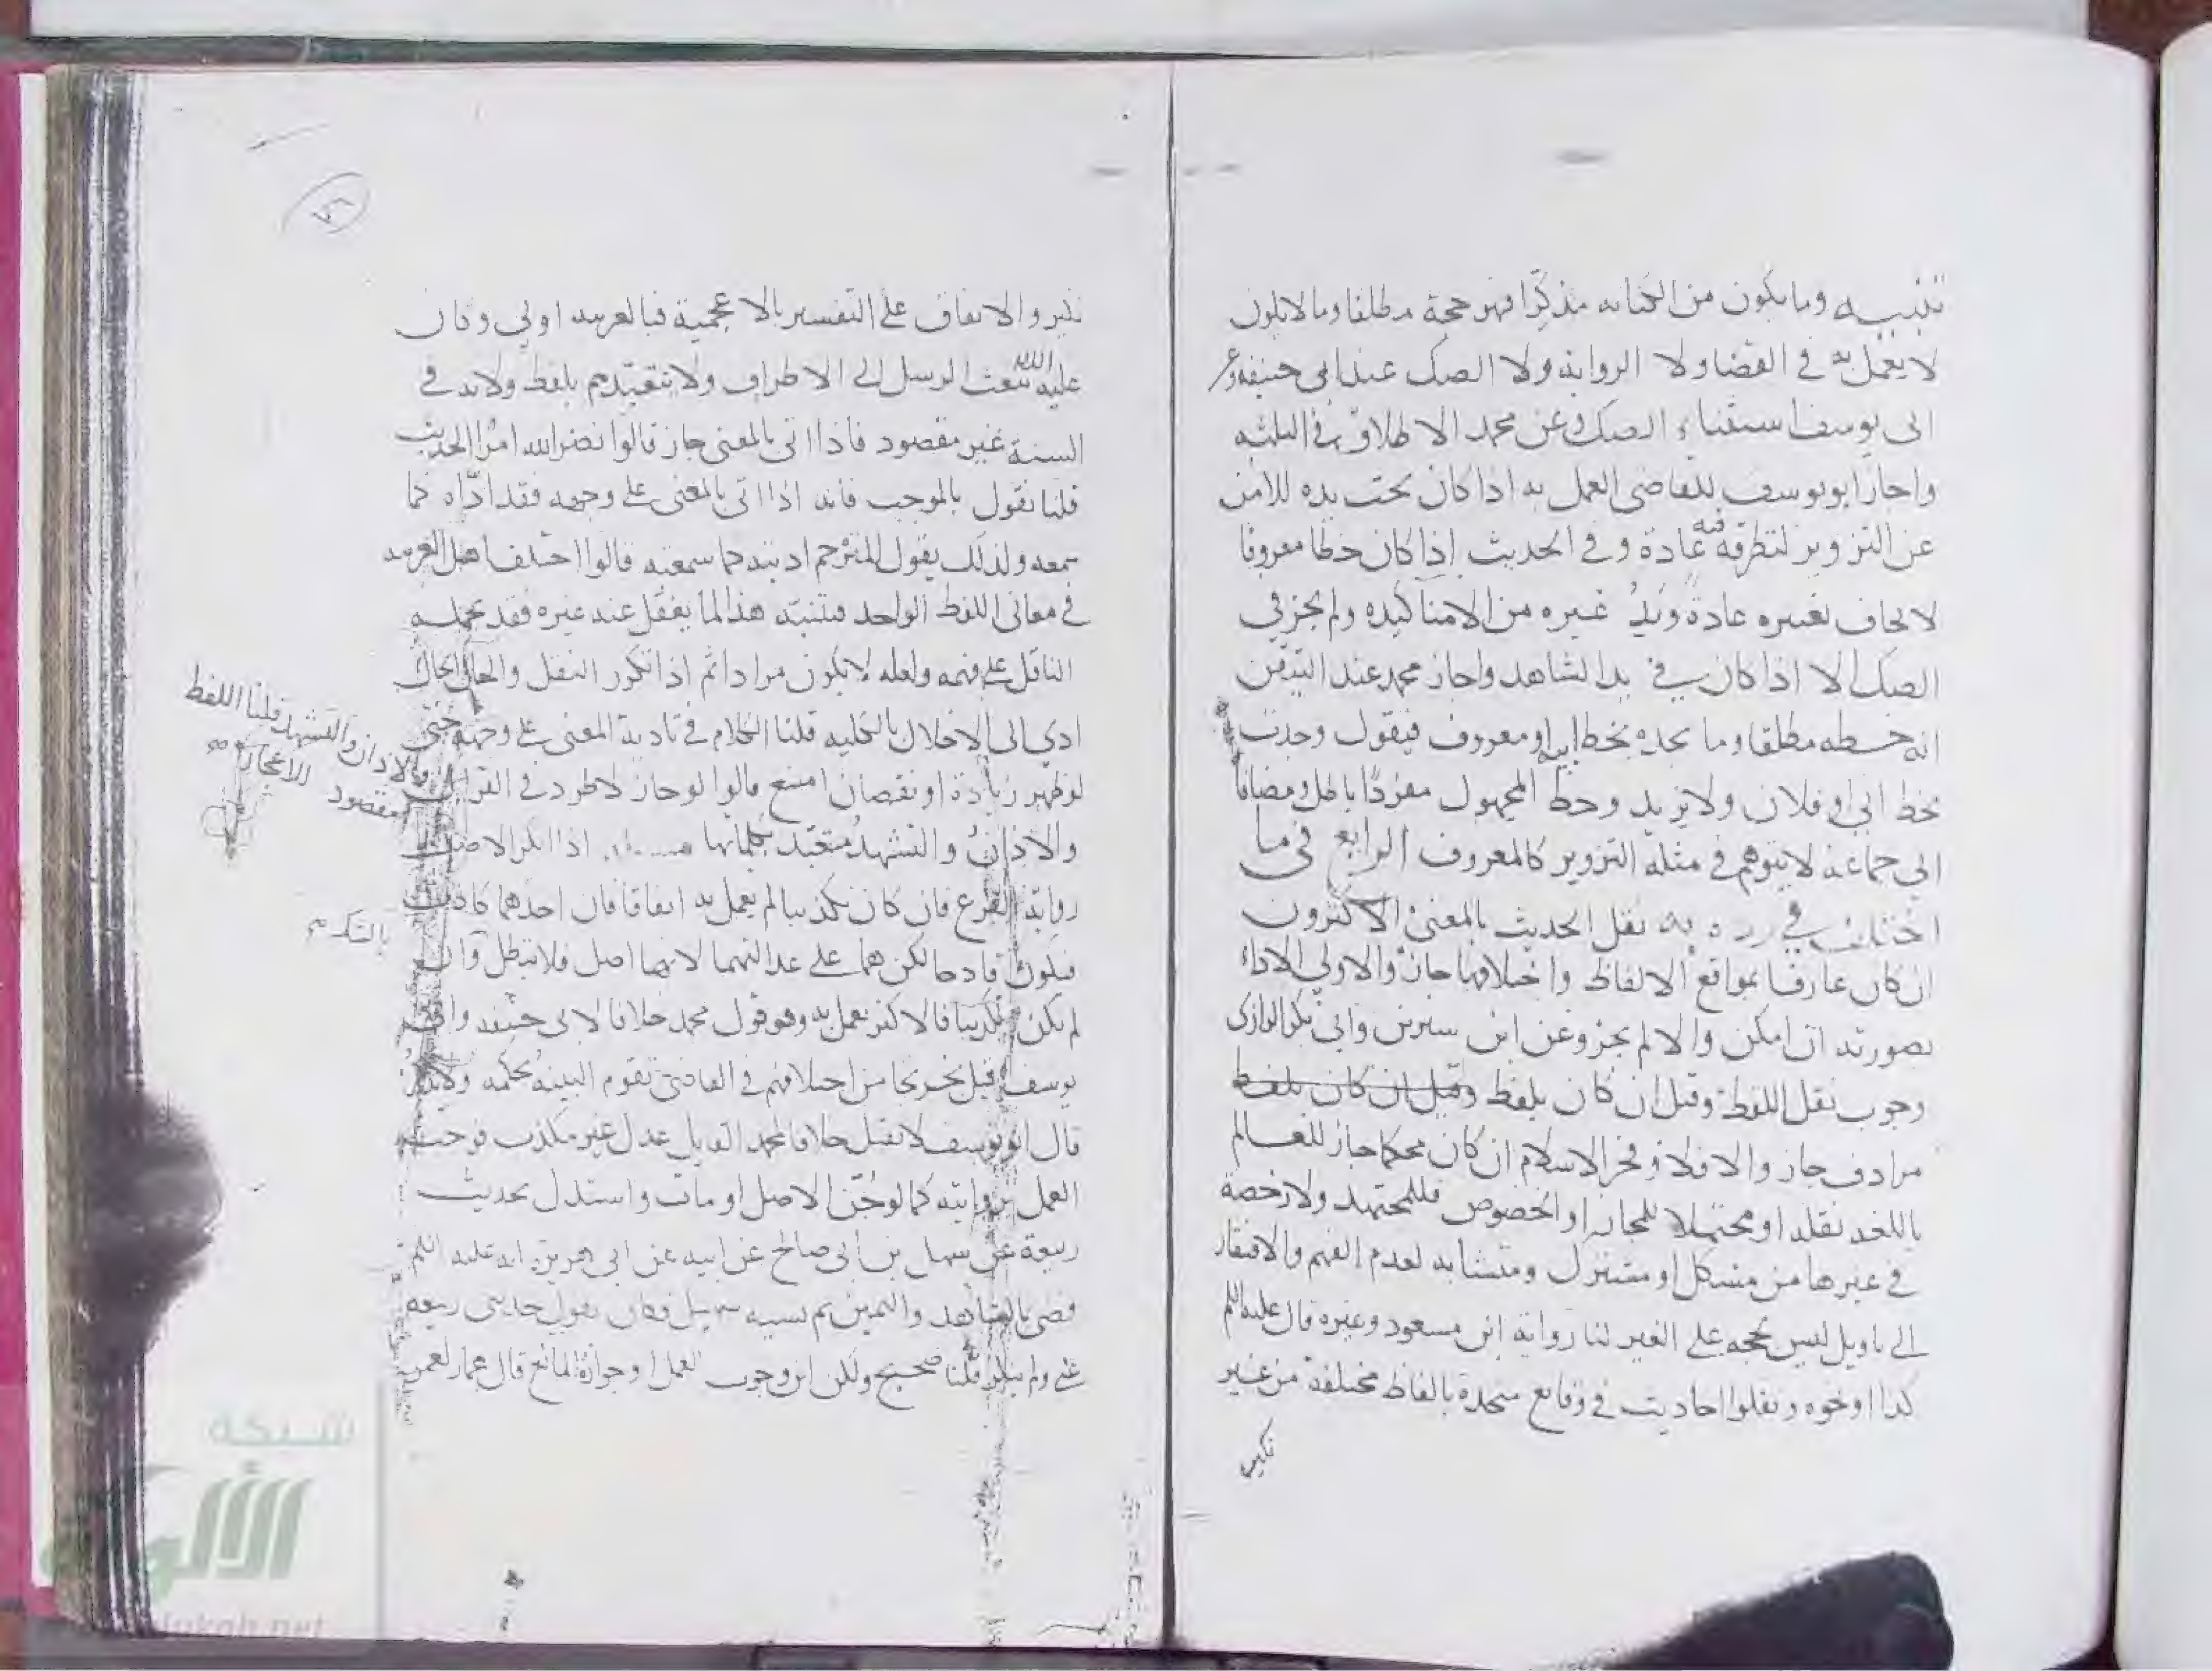 تنبيه وما يكون من الكتابه مذكرا فهو حجة مطلقا وما لا يكون
لا يعمل به في القضا ولا الرواية ولا الصك عند ابي حنيفه وعن
ابي يوسف استثناء الصك وعن محمد الاطلاق في الثلثه
واجاز ابو يوسف للقاضي العمل به اذا كان تحت يده للامن
عن التزوير لتطرقه فيه عادة وفي الحديث إذا كان خطا معروفا
لا يخاف تغييره عادة ويد غيره من الامنا كيده ولم يجز في
الصك الا اذا كان في يد الشاهد واجاز محمد عند التيقن
انه خطه مطلقا وما يجده بخط ابيه او معروف فيقول وجدت
بخط ابي او فلان ولا يزيد وخط المجهول مفردا باطل ومضافا
الى جماعة لا يتوهم في مثله التزوير كالمعروف الرابع في ما
اختلف في رده به نقل الحديث بالمعنى الاكثرون
ان كان عارفا بمواقع الالفاظ واختلافها جاز والاولى الاداء
بصورته ان امكن والا لم يجز وعن ابن سيرين وابي بكر الرازي
وجوب نقل اللفظ وقيل ان كان بلفظ وقيل ان كان بلفظ
مرادف جاز والا فلا وفخر الاسلام ان كان محكما جاز للعالم
باللغه نقله او محتملا للمجاز او الخصوص فللمجتهد ولا رخصة
في غيرها من مشكل او مشترك ومتشابه لعدم الفهم والافتقار
الى تاويل ليس بحجه على الغير لنا رواية ابن مسعود وغيره قال عليه اللم
كذا او نحوه ونقلوا احاديث في وقايع متحدة بالفاظ مختلفة من غير
نكير
٧٦
نكير والاتفاق على التفسير بالاعجمية فبالعربيه اولى وكان
عليه اللم يبعث الرسل الى الاطراف ولا يتقيدهم بلفظ ولانه في
السنة غير مقصود فاذا اتى بالمعنى جاز قالوا نضر الله امرا الحديث
قلنا نقول بالموجب فانه اذا اتى بالمعنى على وجهه فقد ادّاه كما
سمعه ولذلك يقول المترجم اديته كما سمعته قالوا اختلف اهل العربيه
في معاني اللفظ الواحد فتنبه هذا لما يغفل عنه غيره فقد يحمله
الناقل على فهمه ولعله لا يكون مرادا ثم اذا تكرر النقل والحال الحال
ادى الى الاخلال بالكليه قلنا الكلام في تادية المعنى على وجهه حتى
لو ظهر زيادة او نقصان امتنع قالوا لو جاز لاطرد في القران
والاذان والتشهد متعبد بكلماتها مسئله اذا انكر الاصل
رواية الفرع فان كان تكذيبا لم يعمل به اتفاقا فان احدهما كاذب
فيكون قادحا لكن هما على عدالتهما لانها اصل فلا تبطل وان
لم يكن تكذيبا فالاكثر يعمل به وهو قول محمد خلافا لابي حنيفه وابي
يوسف قيل تخريجا من اختلافهم في القاضي تقوم البينه بحكمه ولا يذكر
قال ابو يوسف لا تقبل خلافا لمحمد القايل عدل غير مكذب فوجب
العمل بروايته كما لو جن الاصل او مات واستدل بحديث
ربيعة عن سهيل بن ابي صالح عن ابيه عن ابي هريرة انه عليه اللم
قضى بالشاهد واليمين ثم نسيه سهيل فكان يقول حدثني ربيعه
عني ولم ينكر قلنا صحيح ولكن اين وجوب العمل او جوازه المانع قال عمار لعمر
والاذان والتشهد قلنا اللفظ
مقصود للاعجاز صح
بالتكرم
شبكة
الألوكة
alukah.net